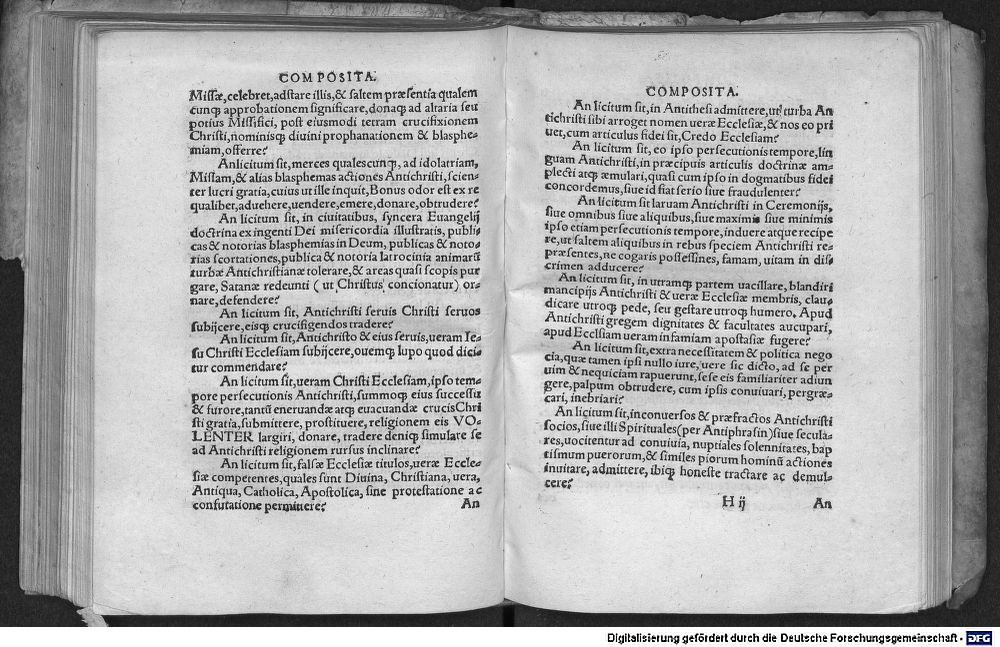 COMPOSITA.
Missæ, celebret, adstare illis, & saltem præsentia qualem
cunqꝫ approbationem significare, donaqꝫ ad altaria seu
potius Missifici, post eiusmodi tetram crucifixionem
Christi, nominisqꝫ diuini prophanationem & blasphe-
miam, offerre?
An licitum sit, merces qualescunqꝫ, ad idolatriam,
Missam, & alias blasphemas actiones Antichristi, scien-
ter lucri gratia, cuius ut ille inquit, Bonus odor est ex re
qualibet, aduehere, uendere, emere, donare, obtrudere?
An licitum sit, in ciuitatibus, syncera Euangelij
doctrina ex ingenti Dei misericordia illustratis, publi-
cas & notorias blasphemias in Deum, publicas & noto-
rias scortationes, publica & notoria latrocinia animarũ
turbæ Antichristianæ tolerare, & areas quasi scopis pur
gare, Satanæ redeunti ( ut Christus concionatur) or-
nare, defendere?
An licitum sit, Antichristi seruis Christi seruos
subijcere, eisqꝫ crucifigendos tradere?
An licitum sit, Antichristo & eius seruis, ueram Ie-
su Christi Ecclesiam subijcere, ouemqꝫ lupo quod dici-
tur commendare?
An licitum sit, ueram Christi Ecclesiam, ipso tem-
pore persecutionis Antichristi, summoqꝫ eius successu
& furore, tantũ eneruandæ atqꝫ euacuandæ crucis Chri
sti gratia, submittere, prostituere, religionem eis VO-
LENTER largiri, donare, tradere deniqꝫ simulare se
ad Antichristi religionem rursus inclinare?
An licitum sit, falsæ Ecclesiæ titulos, ueræ Eccle-
siæ competentes, quales sunt Diuina, Christiana, uera,
Antiqua, Catholica, Apostolica, sine protestatione ac
confutatione permittere?
An
COMPOSITA.
An licitum sit, in Antithesi admittere, ut turba An
tichristi sibi arroget nomen ueræ Ecclesiæ, & nos eo pri
uet, cum articulus fidei sit, Credo Ecclesiam?
An licitum sit, eo ipso persecutionis tempore, lin
guam Antichristi, in præcipuis articulis doctrinæ am-
plecti atqꝫ æmulari, quasi cum ipso in dogmatibus fidei
concordemus, siue id fiat serio siue fraudulenter?
An licitum sit laruam Antichristi in Ceremonijs,
siue omnibus siue aliquibus, siue maximis siue minimis
ipso etiam persecutionis tempore, induere atque recipe
re, ut saltem aliquibus in rebus speciem Antichristi re-
præsentes, ne cogaris possessines, famam, uitam in dis-
crimen adducere?
An licitum sit, in utramqꝫ partem uacillare, blandiri
mancipijs Antichristi & ueræ Ecclesiæ membris, clau-
dicare utroqꝫ pede, seu gestare utroqꝫ humero. Apud
Antichristi gregem dignitates & facultates aucupari,
apud Ecclsiam ueram infamiam apostasiæ fugere?
An licitum sit, extra necessitatem & politica nego
cia, quæ tamen ipsi nullo iure, uere sic dicto, ad se per
uim & nequiciam rapuerunt, sese eis familiariter adiun
gere, palpum obtrudere, cum ipsis conuiuari, pergræ-
cari, inebriari?
An licitum sit, inconuersos & præfractos Antichristi
socios, siue illi Spirituales (per Antiphrasin) siue secula-
res, uocitentur ad conuiuia, nuptiales solennitates, bap
tismum puerorum, & similes piorum hominũ actiones
inuitare, admittere, ibiqꝫ honeste tractare ac demul-
cere?
H ij An
Digitalisierung gefördert durch die Deutsche Forschungsgemeinschaft - DFG